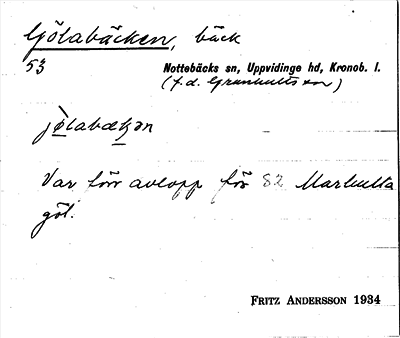 Götabäcken, bäck
53 Nottebäcks sn, Uppvidinge hd, Kronob. l.
(f.d. Granhults sn)
jø̀labæꞣən
Var förr avlopp för 52 Marhulta
göl.
FRITZ ANDERSSON 1934